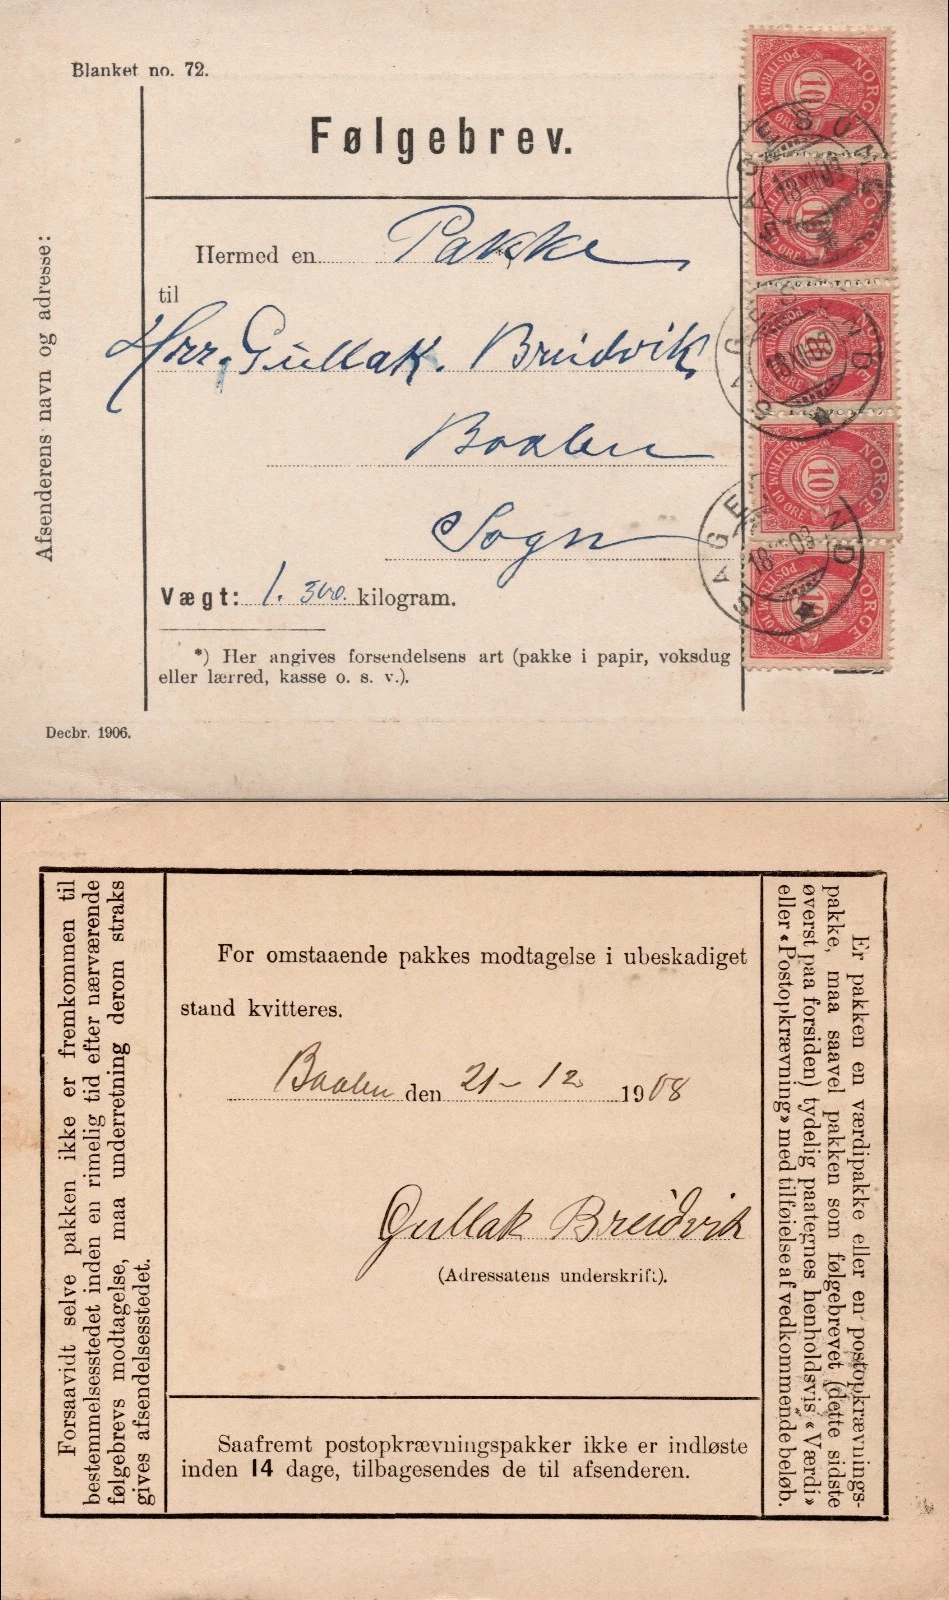 Blanket no. 72.
Følgebrev.
Afsenderens navn og adresse:
Hermed en Pakke
til
Hrr. Gullak. Breidvik
Baalen
Sogn
Vægt: 1. 300. kilogram.
*) Her angives forsendelsens art (pakke i papir, voksdug
eller lærred, kasse o. s. v.).
Decbr. 1906.
NORGE
POSTFRIM. 10 ØRE
10
NORGE
10
NORGE
POSTFRIM. 10 ØRE
NORGE
POSTFRIM. 10 ØRE
10
NORGE
POSTFRIM. 10 ØRE
10
SAGESUND
18 XII 08
SAGESUND
18 XII 08
SAGESUND
18 08
Forsaavidt selve pakken ikke er fremkommen til
bestemmelsesstedet inden en rimelig tid efter nærværende
følgebrevs modtagelse, maa underretning derom straks
gives afsendelsesstedet.
For omstaaende pakkes modtagelse i ubeskadiget
stand kvitteres.
Baalen den 21 - 12 1908
Gullak Breidvik
(Adressatens underskrift).
Saafremt postopkrævningspakker ikke er indløste
inden 14 dage, tilbagesendes de til afsenderen.
Er pakken en værdipakke eller en postopkrævnings-
pakke, maa saavel pakken som følgebrevet (dette sidste
øverst paa forsiden) tydelig paategnes henholdsvis «Værdi»
eller «Postopkrævning» med tilføielse af vedkommende beløb.